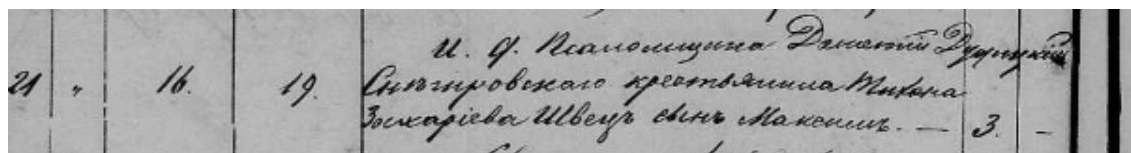 И. д. Псаломщика Донатій Дудицкій
21 " 16. 19. Снѣгировскаго крестьянина Тихона
Захаріева Швецъ сынъ Максимъ. — 3. –